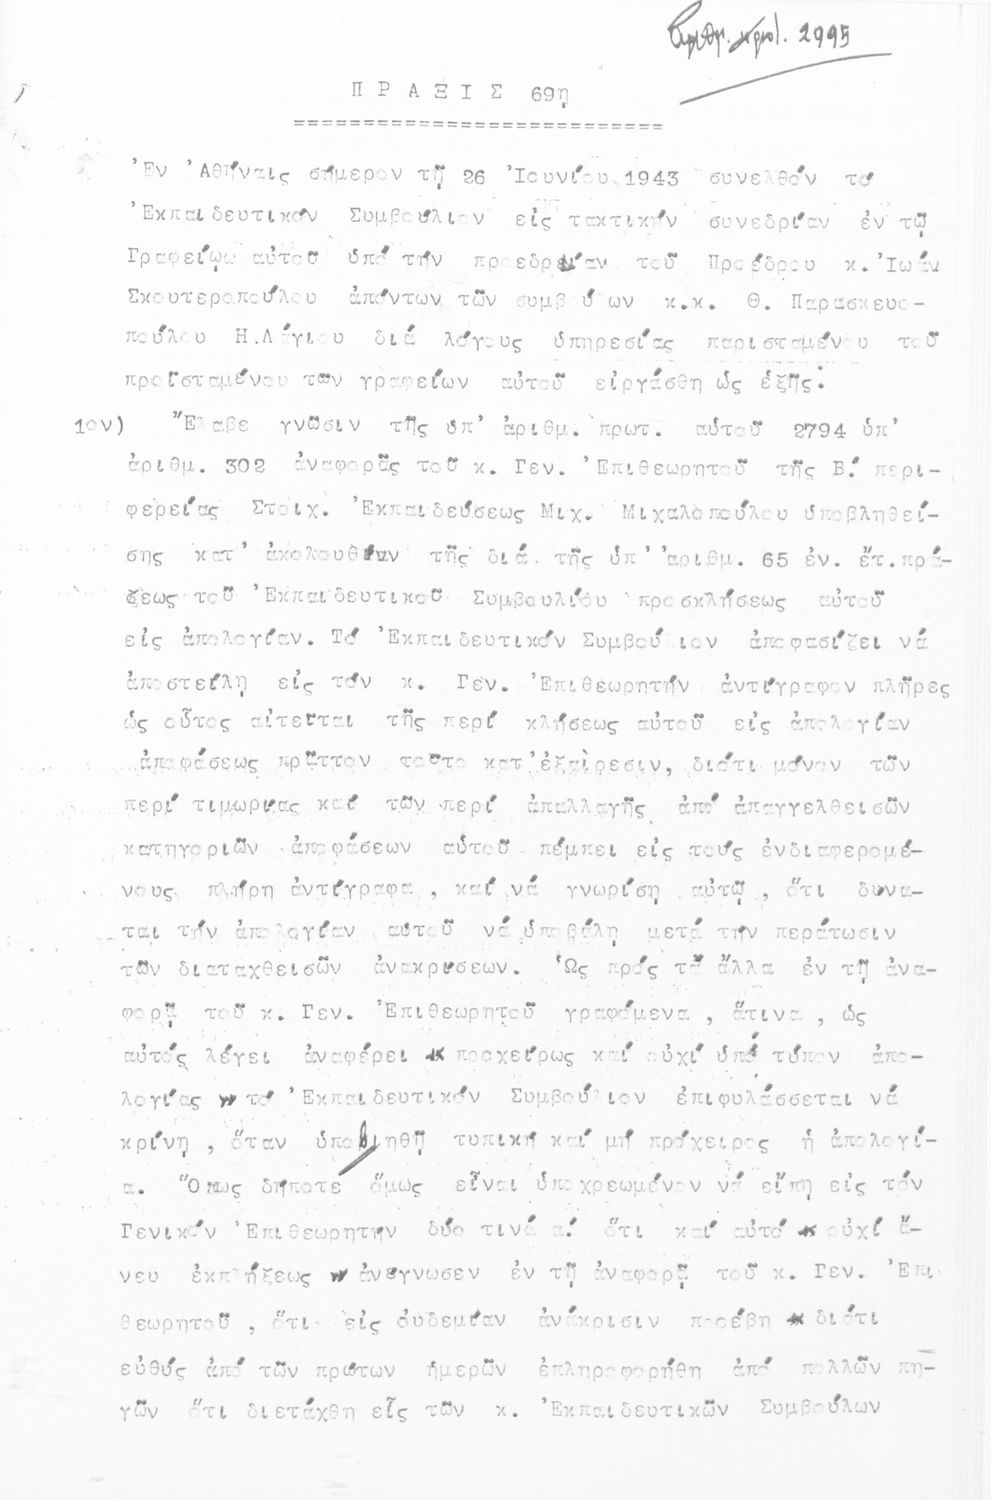 Ἀριθμ. πρωτ. 2995
Π Ρ Α Ξ Ι Σ 69η
===========================
Ἐν Ἀθήναις σήμερον τῇ 26 Ἰουνίου 1943 συνελθόν τό
Ἐκπαιδευτικόν Συμβούλιον εἰς τακτικήν συνεδρίαν ἐν τῷ
Γραφείῳ αὐτοῦ ὑπό τήν προεδρείαν τοῦ Προέδρου κ. Ἰωάν
Σκουτεροπούλου ἀπόντων τῶν συμβούλων κ.κ. Θ. Παρασκευο-
πούλου Η.Λάγιου διά λόγους ὑπηρεσίας παρισταμένου τοῦ
προϊσταμένου των γραφείων αὐτοῦ εἰργάσθη ὡς ἑξῆς:
1ον) Ἔλαβε γνῶσιν τῆς ὑπ' ἀριθμ. πρωτ. αὐτοῦ 2794 ὑπ'
ἀριθμ. 302 ἀναφορᾶς τοῦ κ. Γεν. Ἐπιθεωρητοῦ τῆς Β΄. περι-
φερείας Στοιχ. Ἐκπαιδεύσεως Μιχ. Μιχαλοπούλου ὑποβληθεί-
σης κατ' ἀκολουθίαν τῆς διά τῆς ὑπ' ἀριθμ. 65 ἐν. ἔτ. πρά-
ξεως τοῦ Ἐκπαιδευτικοῦ Συμβουλίου προσκλήσεως αὐτοῦ
εἰς ἀπολογίαν. Τό Ἐκπαιδευτικόν Συμβούλιον ἀποφασίζει νά
ἀποστείλῃ εἰς τόν κ. Γεν. Ἐπιθεωρητήν ἀντίγραφον πλῆρες
ὡς οὗτος αἰτεῖται τῆς περί κλήσεως αὐτοῦ εἰς ἀπολογίαν
ἀποφάσεως πρᾶττον τοῦτο κατ' ἐξαίρεσιν, διότι μόνον τῶν
περί τιμωρίας καί τῶν περί ἀπαλλαγῆς ἀπό ἀπαγγελθεισῶν
κατηγοριῶν ἀποφάσεων αὐτοῦ πέμπει εἰς τούς ἐνδιαφερομέ-
νους πλήρη ἀντίγραφα , καί νά γνωρίσῃ αὐτῷ , ὅτι δύνα-
ται τήν ἀπολογίαν αὐτοῦ νά ὑποβάλῃ μετά τήν περάτωσιν
τῶν διαταχθεισῶν ἀνακρίσεων. Ὡς πρός τά ἄλλα ἐν τῇ ἀνα-
φορᾷ τοῦ κ. Γεν. Ἐπιθεωρητοῦ γραφόμενα , ἅτινα , ὡς
αὐτός λέγει ἀναφέρει " προχείρως καί οὐχί ὑπό τύπον ἀπο-
λογίας " τό Ἐκπαιδευτικόν Συμβούλιον ἐπιφυλάσσεται νά
κρίνῃ , ὅταν ὑποβληθῇ τυπική καί μή πρόχειρος ἡ ἀπολογί-
α. Ὅπως δήποτε ὅμως εἶναι ὑποχρεωμένον νά εἴπῃ εἰς τόν
Γενικόν Ἐπιθεωρητήν δύο τινά α΄ ὅτι καί αὐτό " οὐχί ἄ-
νευ ἐκπλήξεως " ἀνέγνωσεν ἐν τῇ ἀναφορᾷ τοῦ κ. Γεν. Ἐπι
θεωρητοῦ , ὅτι εἰς οὐδεμίαν ἀνάκρισιν προέβη " διότι
εὐθύς ἀπό τῶν πρώτων ἡμερῶν ἐπληροφορήθη ἀπό πολλῶν πη-
γῶν ὅτι διετάχθη εἷς τῶν κ. Ἐκπαιδευτικῶν Συμβούλων